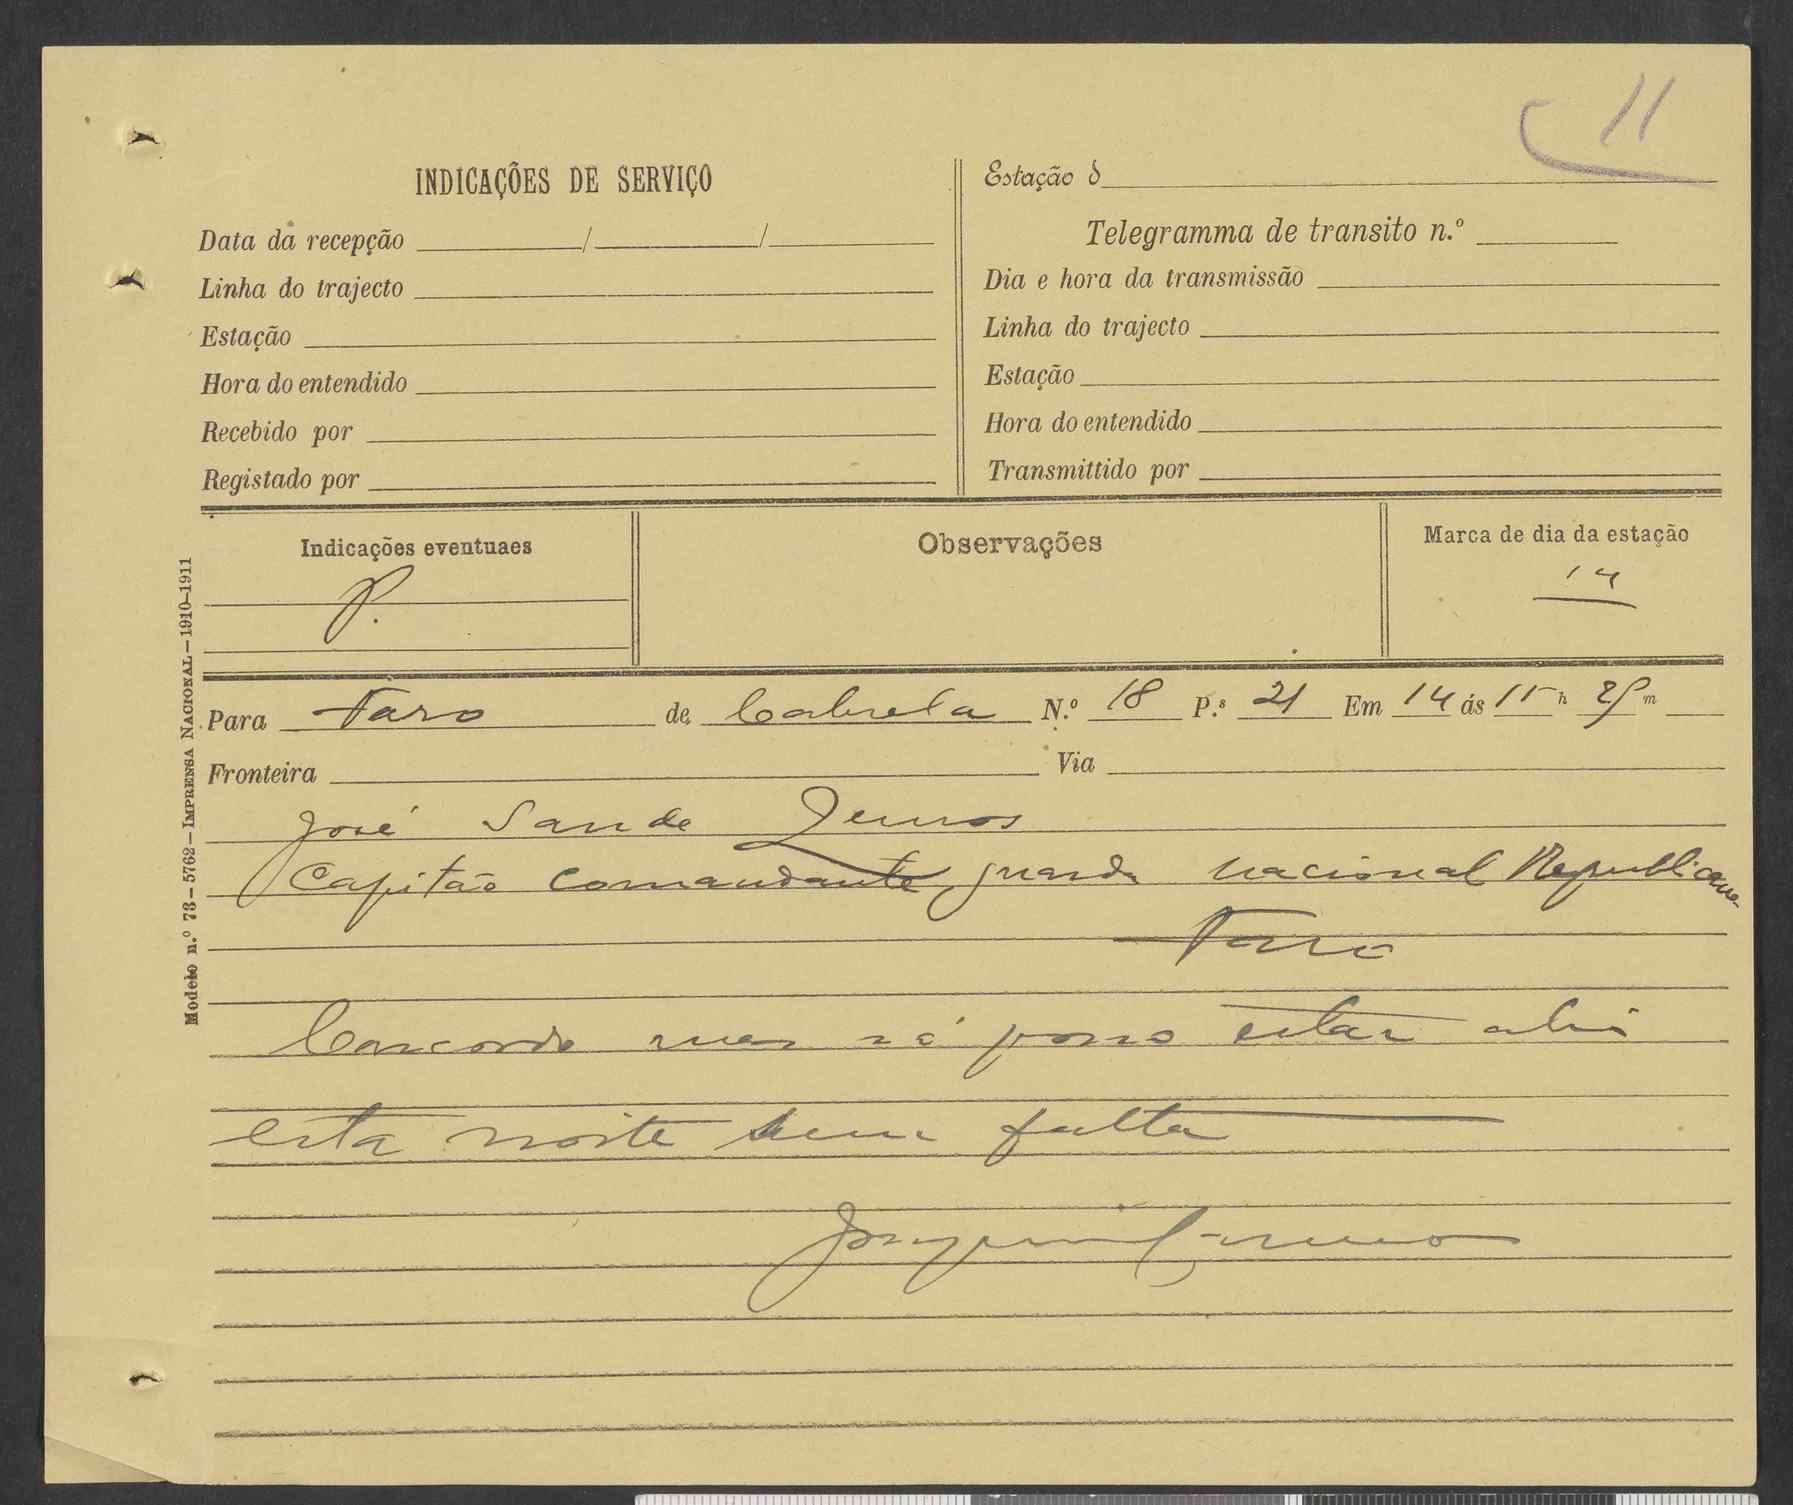 11
INDICAÇÕES DE SERVIÇO
Data da recepção / /
Linha do trajecto
Estação
Hora do entendido
Recebido por
Registado por
Estação d
Telegramma de transito n.º
Dia e hora da transmissão
Linha do trajecto
Estação
Hora do entendido
Transmittido por
Indicações eventuaes
P.
Observações
Marca de dia da estação
14
Modelo n.º 73—5762—IMPRENSA NACIONAL—1910-1911
Para Faro de Cabrela N.º 18 P.s 21 Em 14 ás 15 h 25 m
Fronteira Via
José Sande Lemos
Capitão Comandante guarda nacional Republicana
Faro
Concordo mas só posso estar ahi
esta noite sem falta
Joaquim